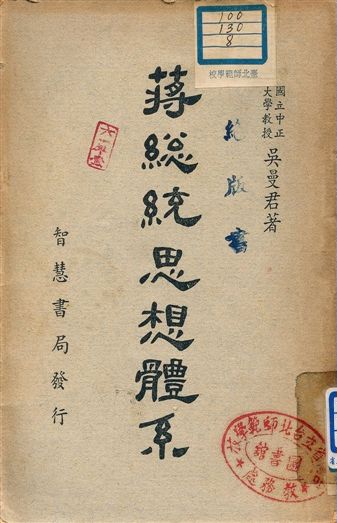 100
130
8
臺北師範學校
國立中正
大學教授
吳曼君著
蔣総統思想體系
絶版書
智慧書局發行
省立台北師範學校
圖書館
教務處